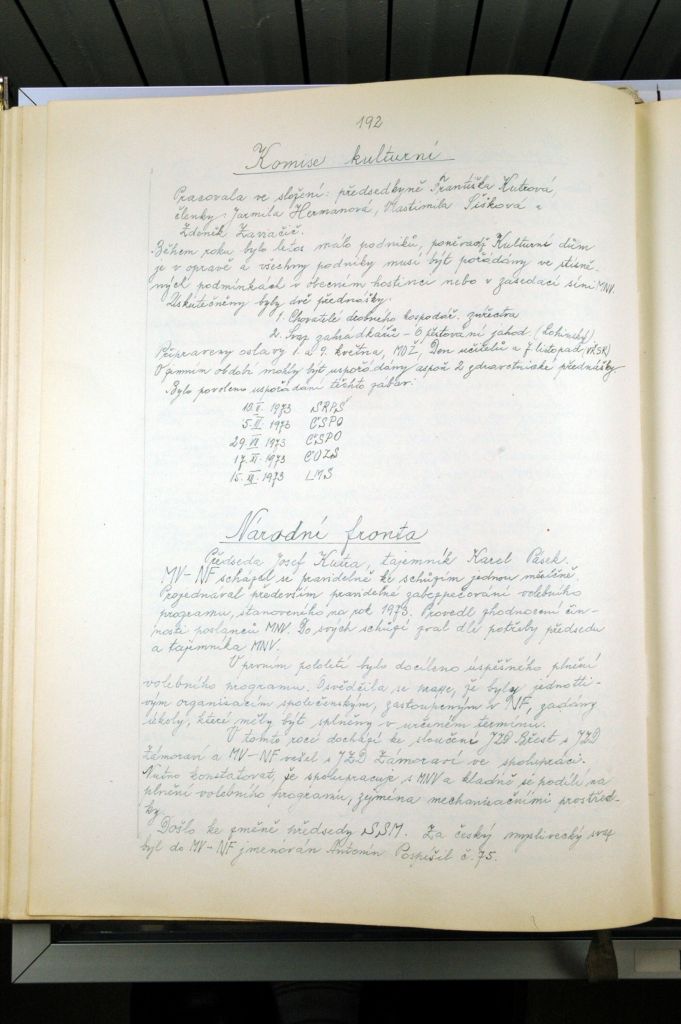 192
Komise kulturní
Pracovala ve složení: předsedkyně Františka Kutrová,
členky: Jarmila Hermanová, Vlastimila Šišková a
Zdeněk Zavračič.
Během roku bylo letos málo podniků, poněvadž Kulturní dům
je v opravě a všechny podniky musí být pořádány ve stísně-
ných podmínkách v obecním hostinci nebo v zasedací síni MNV.
Uskutečněny byly dvě přednášky:
1. Chovatelé drobného hospodář. zvířectva
2. Svaz zahrádkářů - O pěstování jahod (Rohinský)
Připraveny oslavy 1. a 9. května, MDŽ, Den učitelů a 7. listopad VŘSR)
V zimním období mohly být uspořádány aspoň 2 zdravotnické přednášky
Bylo povoleno uspořádání těchto zábav:
10. II. 1973 SRPŠ
5. III. 1973 ČSPO
29. VII 1973 ČSPO
17. XI. 1973 ČOZS
15. XII. 1973 LMS
Národní fronta
Předseda Josef Kutra, tajemník Karel Pásek.
MV-NF scházel se pravidelně ke schůzím jednou měsíčně.
Projednával především pravidelné zabezpečování volebního
programu, stanoveného na rok 1973. Provedl zhodnocení čin-
nosti poslanců MNV. Do svých schůzí zval dle potřeby předsedu
a tajemníka MNV.
V prvním pololetí bylo docíleno úspěšného plnění
volebního programu. Osvědčila se praxe, že byly jednotli-
vým organisacím společenským, zastoupeným v NF, zadány
úkoly, které měly být splněny v určeném termínu.
V tomto roce dochází ke sloučení JZD Břest s JZD
Žámoraví a MV-NF vešel s JZD Žámoraví ve spolupráci.
Nutno konstatovat, že spolupracuje s MNV a kladně se podílí na
plnění volebního programu, zejména mechanisačními prostřed-
ky.
Došlo ke změně předsedy SSM. Za český myslivecký svaz
byl do MV-NF jmenován Antonín Pospíšil č. 75.